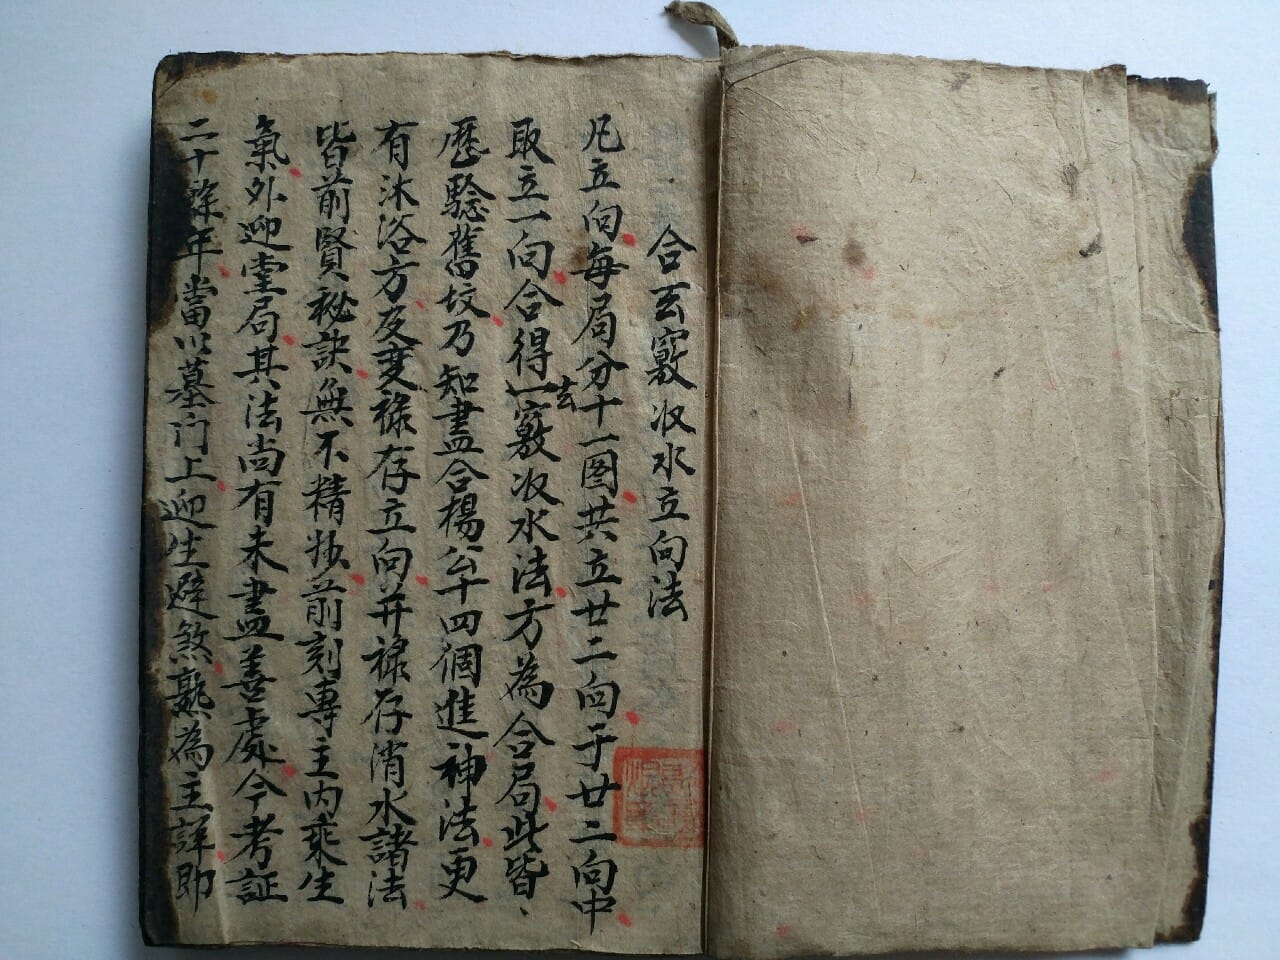 合玄竅収水立向法
凡立向每局分十一图共立廿二向于廿二向中
取立一向合得一玄竅収水法方為合局此皆、
歷驗舊坟乃知盡合楊公十四個進神法更
有沐浴方及雙祿存立向并祿存消水諸法
皆前賢秘訣無不精妙前刻專主内乘生
氣外迎堂局其法尚有未盡善處今考証
二十餘年當以墓门上迎生避煞為主詳即